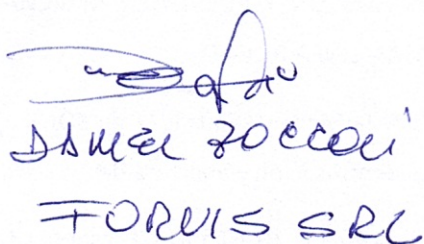 DANIEL ZOCCOLI
FORVIS SRL